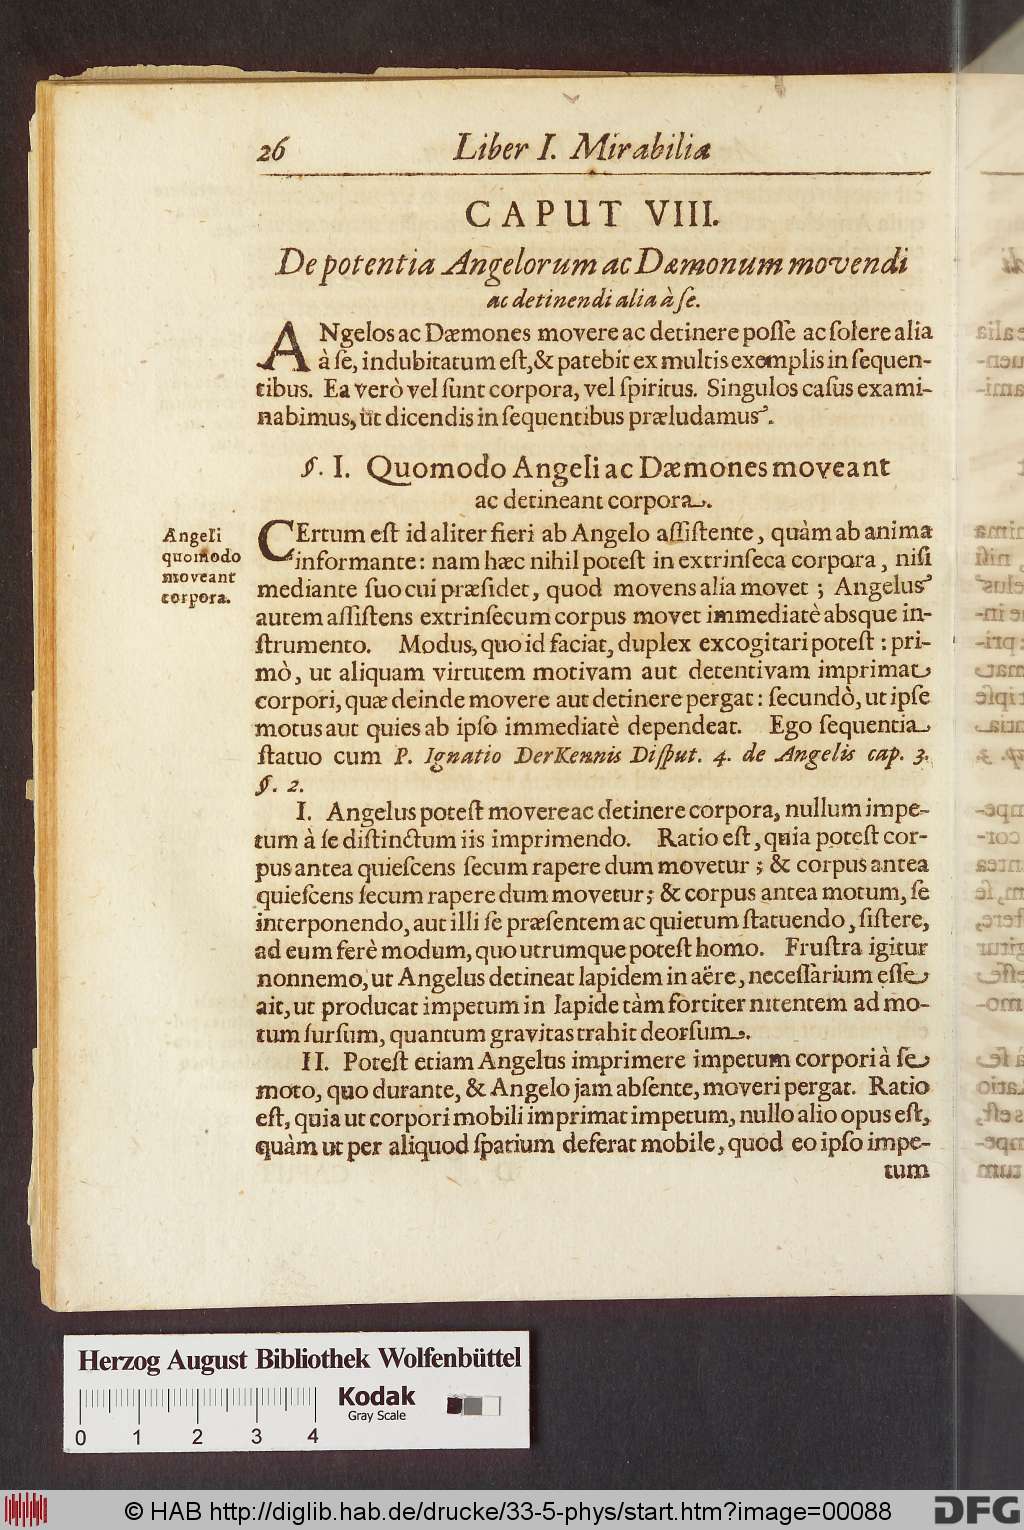 26 Liber I. Mirabilia
CAPUT VIII.
De potentia Angelorum ac Dæmonum movendi
ac detinendi alia à ſe.
ANgelos ac Dæmones movere ac detinere poſſe ac ſolere alia
à ſe, indubitatum eſt, & patebit ex multis exemplis in ſequen-
tibus. Ea verò vel ſunt corpora, vel ſpiritus. Singulos caſus exami-
nabimus, ut dicendis in ſequentibus præludamus.
§. I. Quomodo Angeli ac Dæmones moveant
ac detineant corpora.
Angeli
quomodo
moveant
corpora.
CErtum eſt id aliter fieri ab Angelo aſſiſtente, quàm ab anima
informante: nam hæc nihil poteſt in extrinſeca corpora, niſi
mediante ſuo cui præſidet, quod movens alia movet; Angelus
autem aſſiſtens extrinſecum corpus movet immediatè absque in-
ſtrumento. Modus, quo id faciat, duplex excogitari poteſt: pri-
mò, ut aliquam virtutem motivam aut detentivam imprimat
corpori, quæ deinde movere aut detinere pergat: ſecundò, ut ipſe
motus aut quies ab ipſo immediatè dependeat. Ego ſequentia
ſtatuo cum P. Ignatio DerKennis Diſput. 4. de Angelis cap. 3.
§. 2.
I. Angelus poteſt movere ac detinere corpora, nullum impe-
tum à ſe diſtinctum iis imprimendo. Ratio eſt, quia poteſt cor-
pus antea quieſcens ſecum rapere dum movetur; & corpus antea
quieſcens ſecum rapere dum movetur; & corpus antea motum, ſe
interponendo, aut illi ſe præſentem ac quietum ſtatuendo, ſiſtere,
ad eum ferè modum, quo utrumque poteſt homo. Fruſtra igitur
nonnemo, ut Angelus detineat lapidem in aëre, neceſſarium eſſe
ait, ut producat impetum in lapide tàm fortiter nitentem ad mo-
tum ſurſum, quantum gravitas trahit deorſum.
II. Poteſt etiam Angelus imprimere impetum corpori à ſe
moto, quo durante, & Angelo jam abſente, moveri pergat. Ratio
eſt, quia ut corpori mobili imprimat impetum, nullo alio opus eſt,
quàm ut per aliquod ſpatium deferat mobile, quod eo ipſo impe-
tum
Herzog August Bibliothek Wolfenbüttel
Kodak
Gray Scale
0 1 2 3 4
© HAB http://diglib.hab.de/drucke/33-5-phys/start.htm?image=00088
DFG